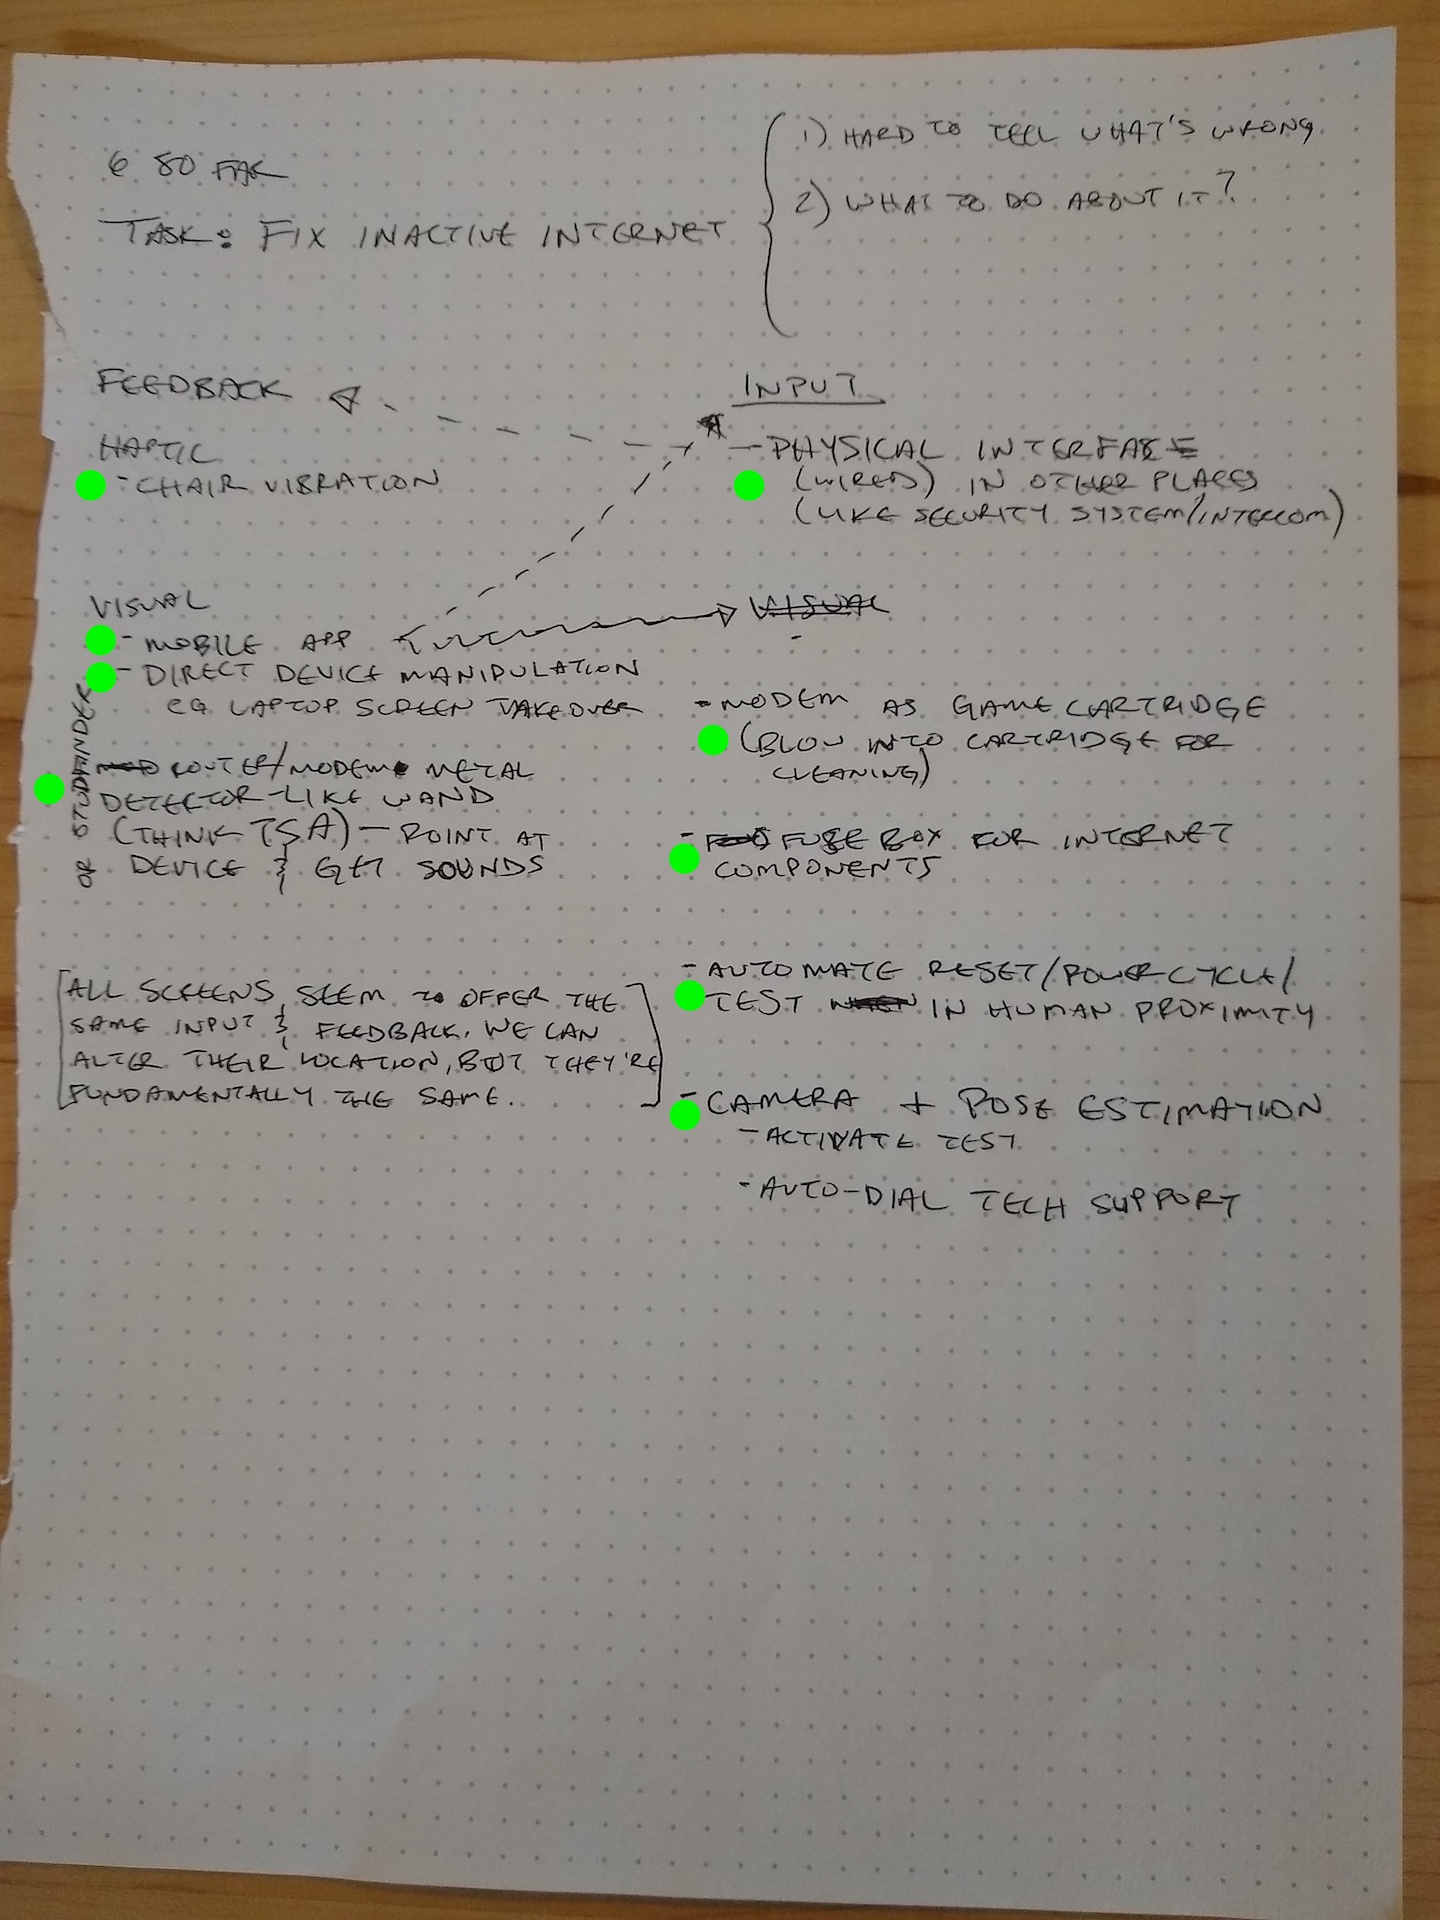 6 SO FAR
TASK: FIX INACTIVE INTERNET
1) HARD TO TELL WHAT'S WRONG
2) WHAT TO DO ABOUT IT?
FEEDBACK
HAPTIC
- CHAIR VIBRATION
VISUAL
- MOBILE APP
- DIRECT DEVICE MANIPULATION
EG LAPTOP SCREEN TAKEOVER
ROUTER/MODEM METAL
DETECTOR-LIKE WAND
(THINK TSA) - POINT AT
DEVICE & GET SOUNDS
OR STUDFINDER
[ALL SCREENS SEEM TO OFFER THE
SAME INPUT & FEEDBACK. WE CAN
ALTER THEIR LOCATION, BUT THEY'RE
FUNDAMENTALLY THE SAME.]
INPUT
- PHYSICAL INTERFACE
(WIRED) IN OTHER PLACES
(LIKE SECURITY SYSTEM/INTERCOM)
VISUAL
-
- MODEM AS GAME CARTRIDGE
(BLOW INTO CARTRIDGE FOR
CLEANING)
- FUSE BOX FOR INTERNET
COMPONENTS
- AUTOMATE RESET/POWER CYCLE/
TEST WHEN IN HUMAN PROXIMITY
- CAMERA + POSE ESTIMATION
- ACTIVATE TEST
- AUTO-DIAL TECH SUPPORT